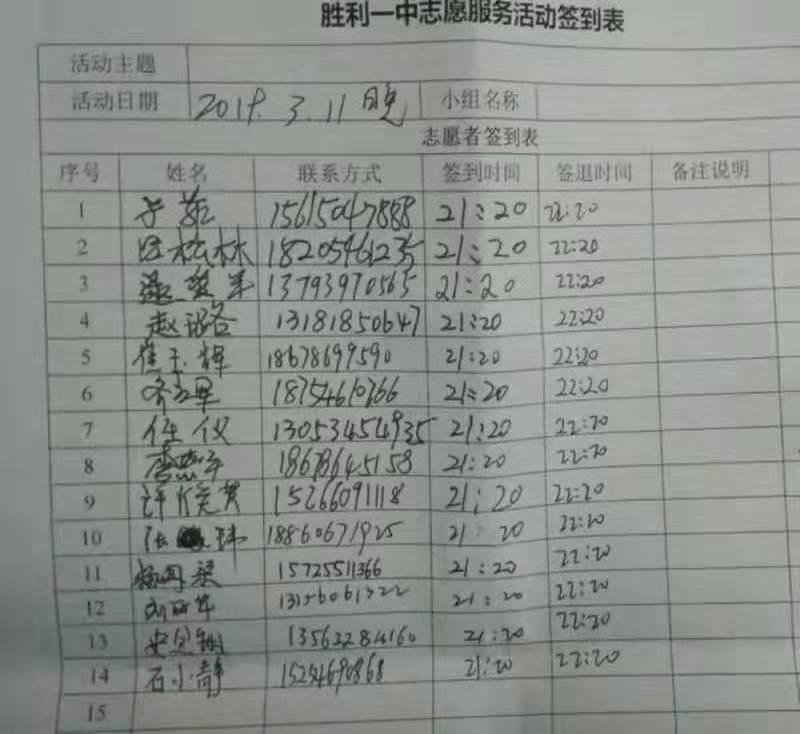 胜利一中志愿服务活动签到表
活动主题
活动日期 2019.3.11晚 小组名称
志愿者签到表
序号 姓名 联系方式 签到时间 签退时间 备注说明
1 15615047888 21:20 22:20
2 松林 18205461235 21:20 22:20
3 13793970565 21:20 22:20
4 赵璐 13181850647 21:20 22:20
5 崔玉辉 18678699590 21:20 22:20
6 18754610766 21:20 22:20
7 任仪 13053454935 21:20 22:20
8 18678645158 21:20 22:20
9 许 英 15266091118 21:20 22:20
10 张 玮 18860671925 21:20 22:20
11 杨 15725511366 21:20 22:20
12 21:20 22:20
13 安 13562284160 21:20 22:20
14 石小静 15254690868 21:20 22:20
15